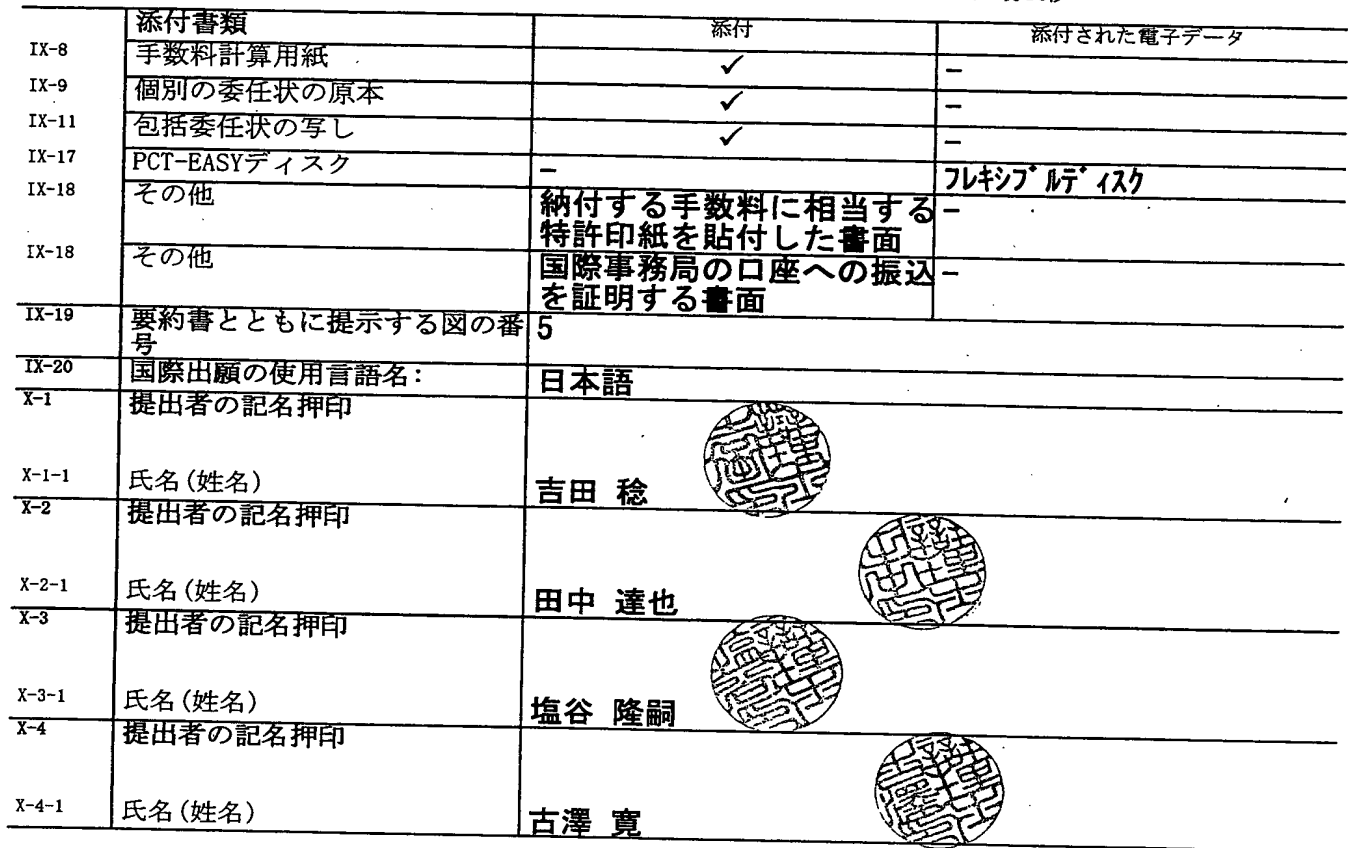 添付書類 添付 添付された電子データ
IX-8 手数料計算用紙 ✓ -
IX-9 個別の委任状の原本 ✓ -
IX-11 包括委任状の写し ✓ -
IX-17 PCT-EASYディスク - フレキシブルディスク
IX-18 その他 納付する手数料に相当する -
特許印紙を貼付した書面
IX-18 その他 国際事務局の口座への振込 -
を証明する書面
IX-19 要約書とともに提示する図の番 5
号
IX-20 国際出願の使用言語名: 日本語
X-1 提出者の記名押印
X-1-1 氏名(姓名) 吉田 稔
X-2 提出者の記名押印
X-2-1 氏名(姓名) 田中 達也
X-3 提出者の記名押印
X-3-1 氏名(姓名) 塩谷 隆嗣
X-4 提出者の記名押印
X-4-1 氏名(姓名) 古澤 寛